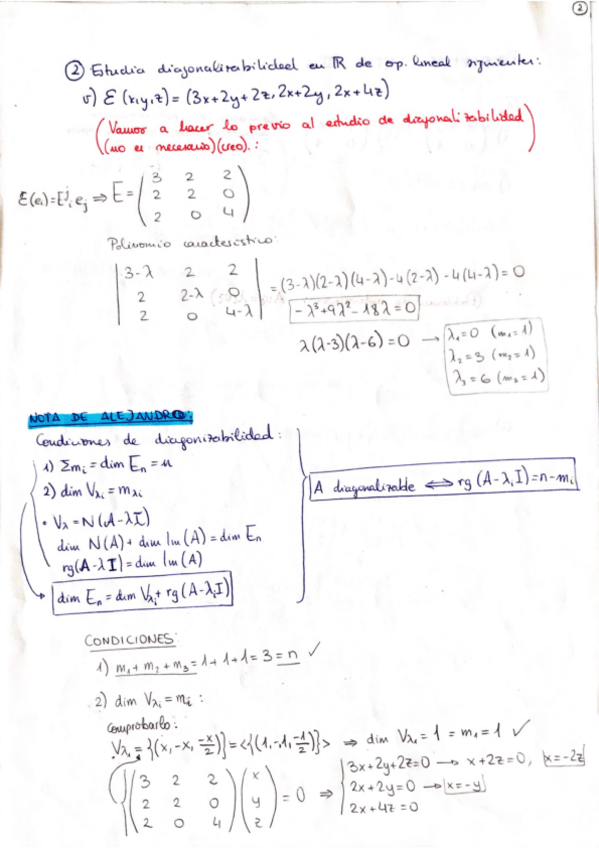 ②
② Estudia diagonalizabilidad en ℝ de op. lineal siguientes:
v) ℰ (x,y,z) = (3x+2y+2z, 2x+2y, 2x+4z)
(Vamos a hacer lo previo al estudio de diagonalizabilidad
(no es necesario)(creo).:)
ℰ(eᵢ)=Eʲᵢ eⱼ ⇒ E = ( 3 2 2
2 2 0
2 0 4 )
Polinomio característico:
| 3-λ 2 2 | = (3-λ)(2-λ)(4-λ) - 4(2-λ) - 4(4-λ) = 0
| 2 2-λ 0 | -λ³+9λ²-18λ=0
| 2 0 4-λ |
λ(λ-3)(λ-6) = 0 → λ₁=0 (m₁=1)
λ₂=3 (m₂=1)
λ₃=6 (m₃=1)
NOTA DE ALEJANDRO:
Condiciones de diagonizabilidad:
1) Σmᵢ = dim Eₙ = n
2) dim Vλᵢ = mλᵢ
A diagonalizable ⟺ rg (A-λᵢI) = n-mᵢ
• Vλ = N(A-λI)
dim N(A) + dim Im(A) = dim Eₙ
rg(A-λI) = dim Im(A)
dim Eₙ = dim Vλᵢ + rg(A-λᵢI)
CONDICIONES:
1) m₁+m₂+m₃ = 1+1+1 = 3 = n ✓
2) dim Vλᵢ = mᵢ :
Comprobarlo:
Vλ₁ = {(x, -x, -x/2)} = <{(1,-1,-1/2)}> ⇒ dim Vλ₁ = 1 = m₁ = 1 ✓
( 3 2 2 ) ( x ) 3x+2y+2z=0 → x+2z=0, x=-2z
( 2 2 0 ) ( y ) = 0 ⇒ 2x+2y=0 → x=-y
( 2 0 4 ) ( z ) 2x+4z=0